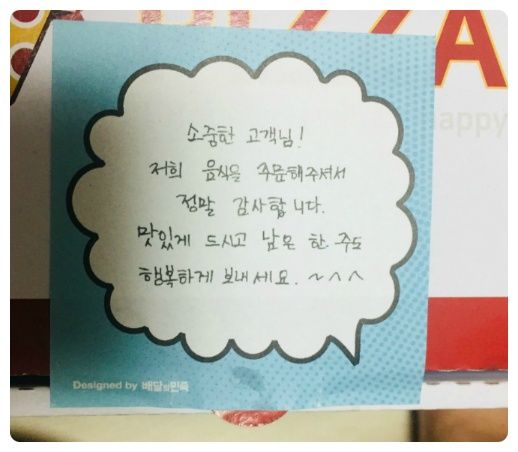 ZZA
appy
소중한 고객님!
저희 음식을 주문해주셔서
정말 감사합니다.
맛있게 드시고 남은 한 주도
행복하게 보내세요. ~^^
Designed by 배달의민족